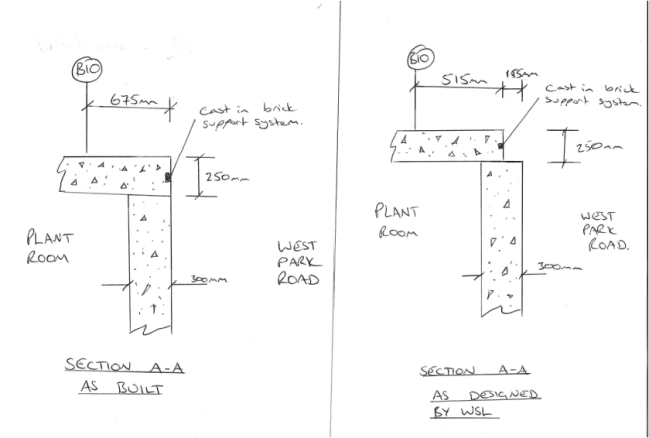 B10
675mm
Cast in brick
support system.
250mm
PLANT
ROOM
WEST
PARK
ROAD
300mm
SECTION A-A
AS BUILT
B10
515mm
Cast in brick
support system.
250mm
PLANT
ROOM
WEST
PARK
ROAD.
300mm
SECTION A-A
AS DESIGNED
BY WSL